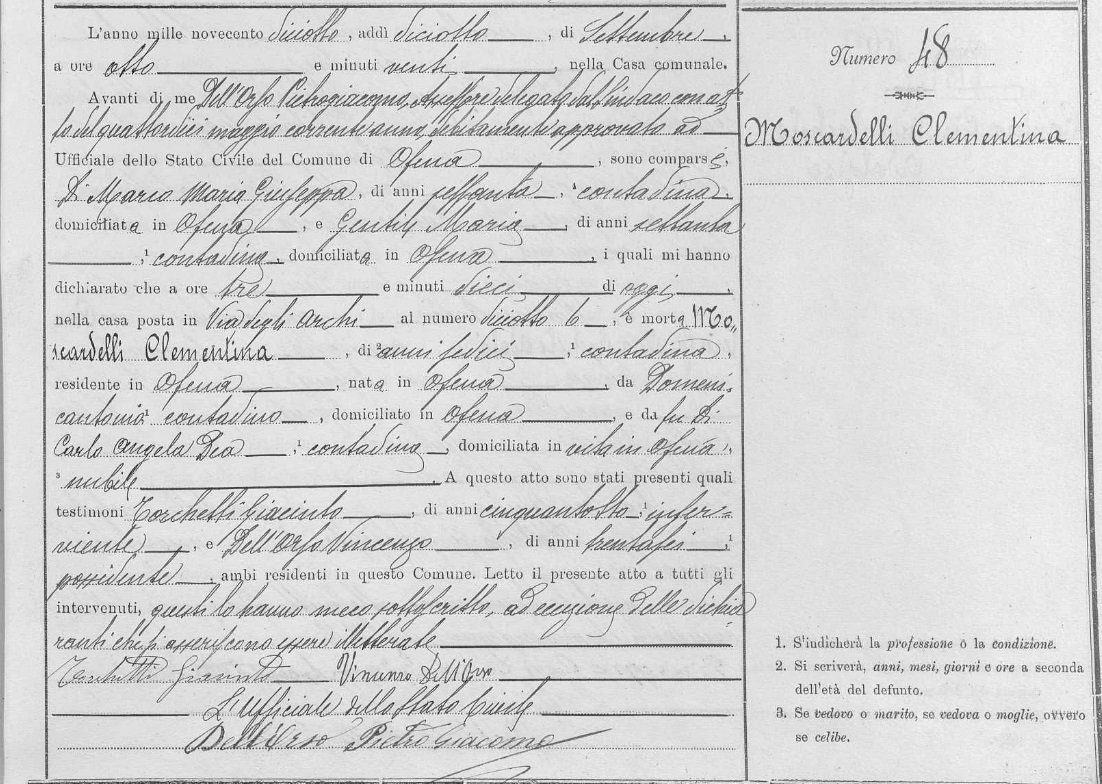 L'anno mille novecento diciotto, addì diciotto, di Settembre,
a ore otto e minuti venti, nella Casa comunale.
Avanti di me Dell'Orso Pietrogiacomo, Assessore delegato dal Sindaco con at=
to del quattordici maggio corrente anno, debitamente approvato ad
Ufficiale dello Stato Civile del Comune di Ofena, sono comparse,
Di Marco Maria Giuseppa, di anni sessanta, ¹ contadina,
domiciliata in Ofena, e Gentile Maria, di anni settanta
, ¹ contadina, domiciliata in Ofena, i quali mi hanno
dichiarato che a ore tre e minuti dieci di oggi,
nella casa posta in Via degli Archi al numero diciotto b, è morta Mo„
scardelli Clementina, di ² anni sedici, ¹ contadina,
residente in Ofena, nata in Ofena, da Domeni=
cantonio ¹ contadino, domiciliato in Ofena, e da fu Di
Carlo Angela Dea, ¹ contadina, domiciliata in vita in Ofena,
³ nubile. A questo atto sono stati presenti quali
testimoni Torchetti Giacinto, di anni cinquantotto, inser=
viente, e Dell'Orso Vincenzo, di anni trentasei, ¹
possidente, ambi residenti in questo Comune. Letto il presente atto a tutti gli
intervenuti, questi lo hanno meco sottoscritto, ad eccezione delle dichia
ranti che si asseriscono essere illetterate
Giacinto Vincenzo Dell'Orso
L'Ufficiale dello Stato Civile
Dell'Orso Pietro Giacomo
Numero 48
Moscardelli Clementina
1. S'indicherà la professione o la condizione.
2. Si scriverà, anni, mesi, giorni e ore a seconda
dell'età del defunto.
3. Se vedovo o marito, se vedova o moglie, ovvero
se celibe.